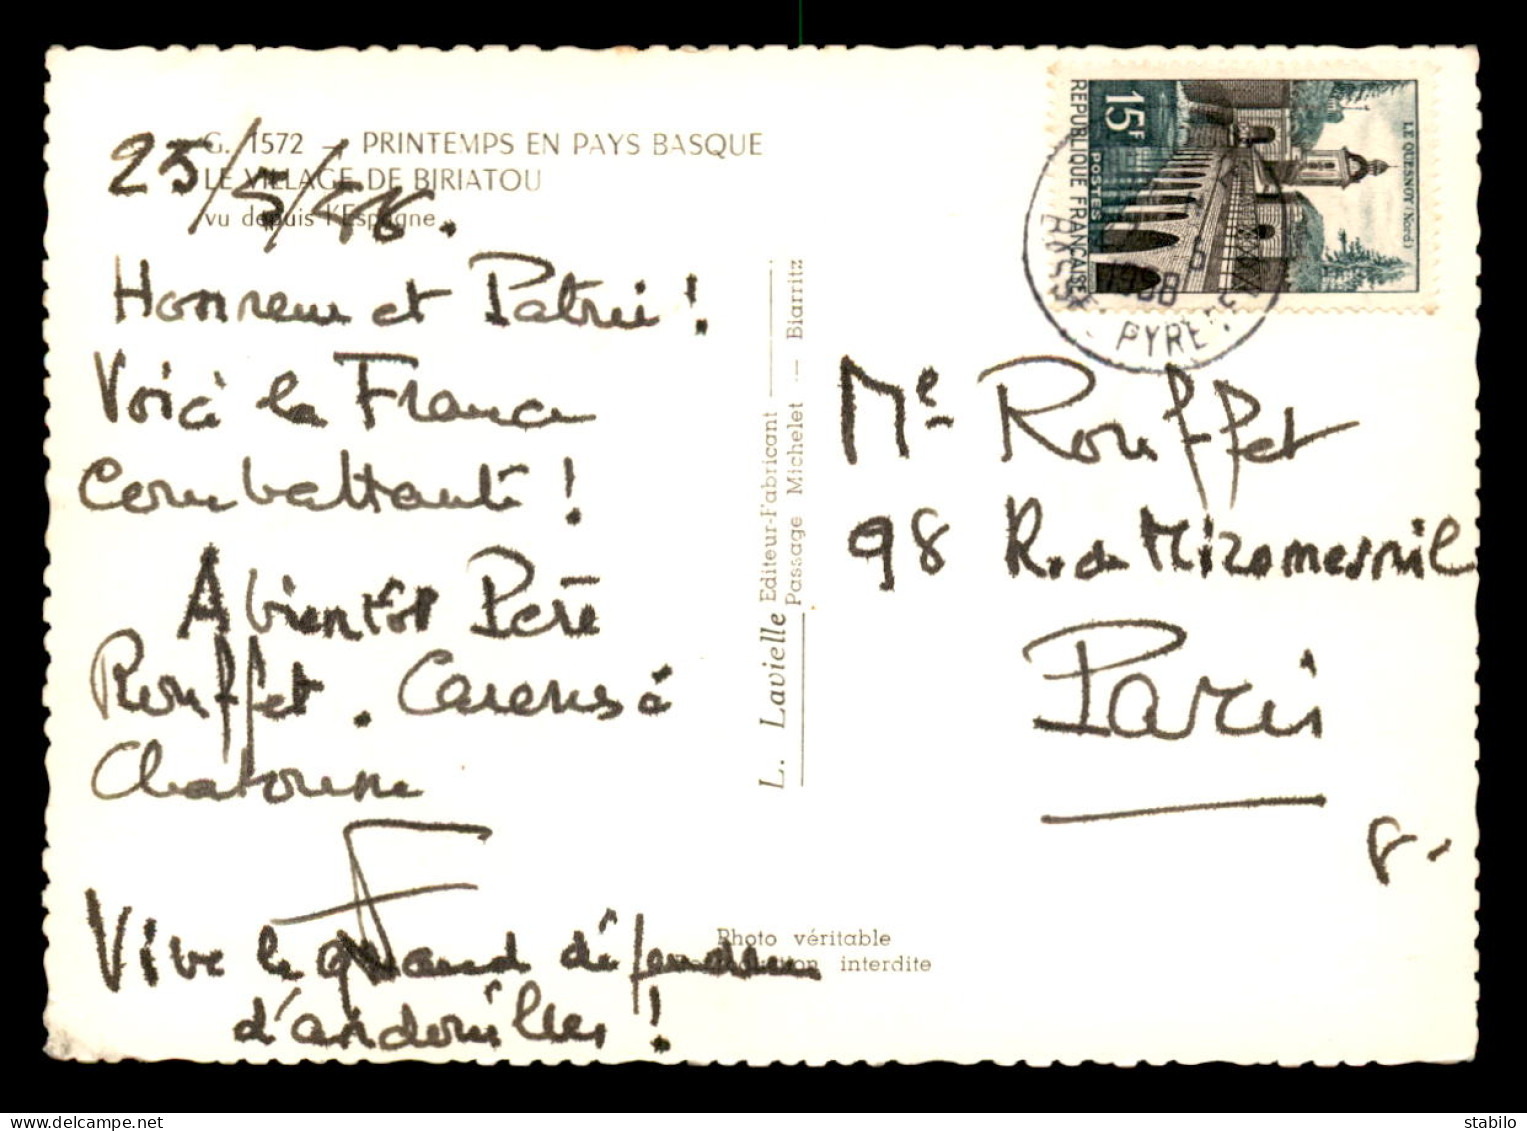 G. 1572 — PRINTEMPS EN PAYS BASQUE
LE VILLAGE DE BIRIATOU
vu depuis l'Espagne
25/5/
Honneur et Patrie !
Voici la France
Combattante !
A bientôt Père
Rouffet. Caresses à
Chatoune
Vive le grand défenseur
d'andouilles !
L. Lavielle Editeur-Fabricant
Passage Michelet — Biarritz
Photo véritable
interdite
15F
POSTES
REPUBLIQUE FRANÇAISE
LE QUESNOY (Nord)
PYRE
Me Rouffet
98 R. de Miromesnil
Paris
8-
stabilo